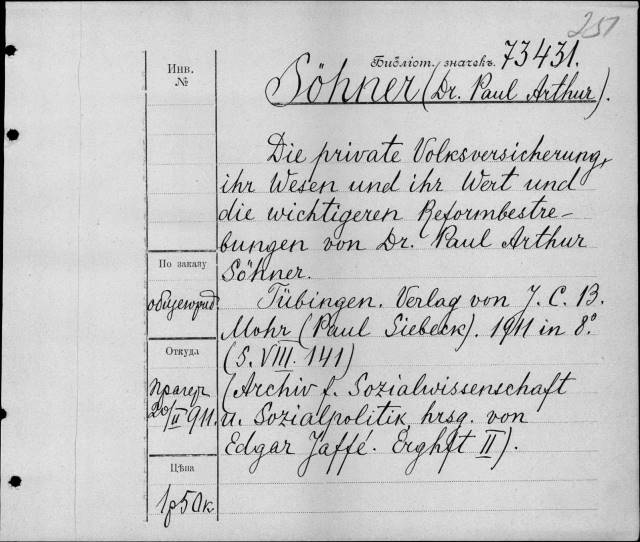 251
Библіот. значекъ. 73431.
Инв.
№
Söhner (Dr. Paul Arthur).
Die private Volksversicherung,
ihr Wesen und ihr Wert und
die wichtigeren Reformbestre-
bungen von Dr. Paul Arthur
Söhner.
По заказу
общеюрид
Tübingen. Verlag von J. C. B.
Mohr (Paul Siebeck). 1911 in 8.°
(S. VIII. 141)
Откуда
Прагеръ
20/II 911.
(Archiv f. Sozialwissenschaft
u. Sozialpolitik, hrsg. von
Edgar Jaffé. Erghft II).
Цѣна
1р50к